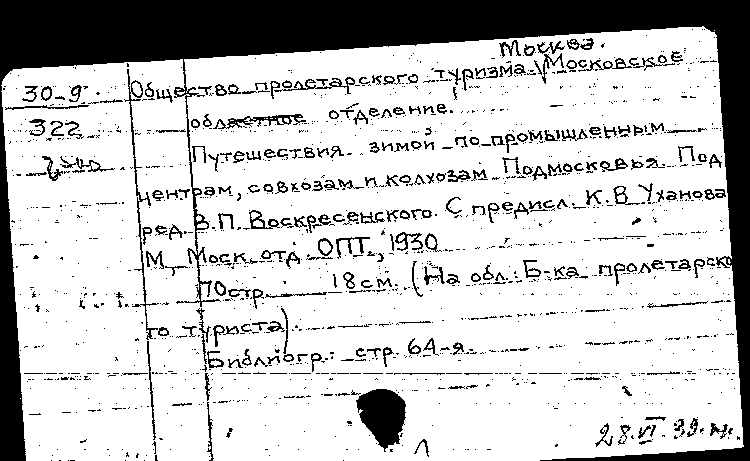 Москва.
30-9. Общество пролетарского туризма. Московское
322 областное отделение.
Путешествия зимой по промышленным
центрам, совхозам и колхозам Подмосковья. Под
ред. В.П. Воскресенского. С предисл. К.В Уханова
М, Моск. отд. ОПТ, 1930
70 стр. 18 см. (На обл.: Б-ка пролетарско
го туриста).
Библиогр.: стр. 64-я.
28.VI.39.